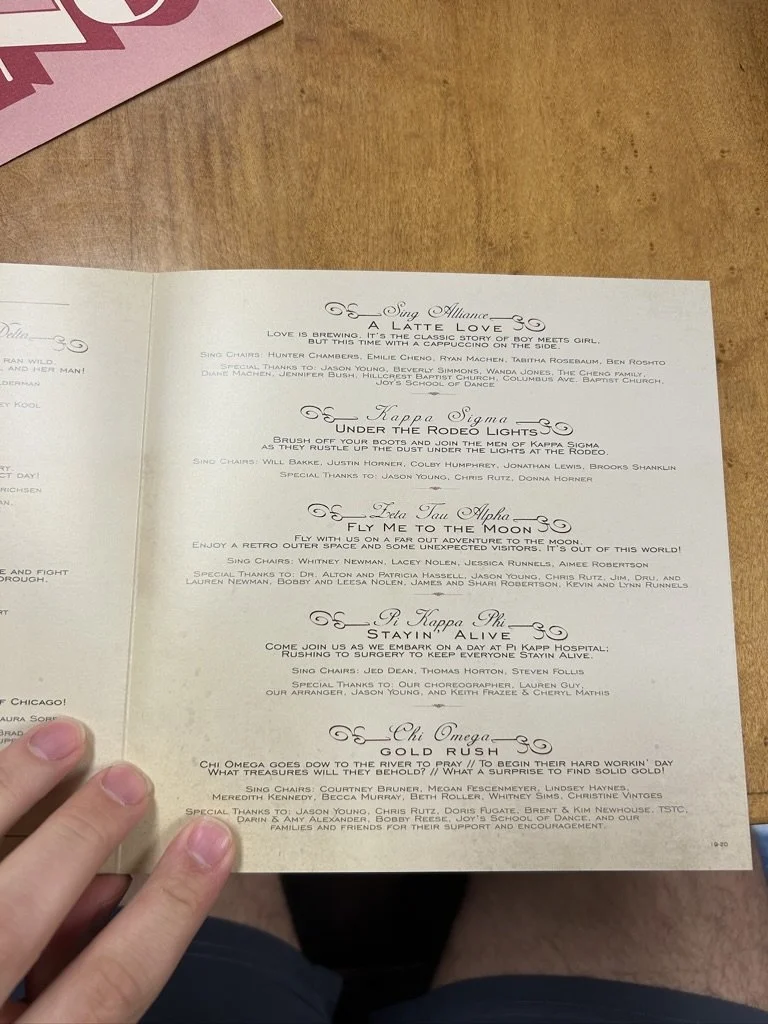 Delta
RAN WILD.
AND HER MAN!
LDERMAN
EY KOOL
RY.
CT DAY!
RICHSEN
AN.
E AND FIGHT
OROUGH.
RT
F CHICAGO!
AURA SORE
BRAD
Sing Alliance
A LATTE LOVE
LOVE IS BREWING. IT'S THE CLASSIC STORY OF BOY MEETS GIRL,
BUT THIS TIME WITH A CAPPUCCINO ON THE SIDE.
SING CHAIRS: HUNTER CHAMBERS, EMILIE CHENG, RYAN MACHEN, TABITHA ROSEBAUM, BEN ROSHTO
SPECIAL THANKS TO: JASON YOUNG, BEVERLY SIMMONS, WANDA JONES, THE CHENG FAMILY,
DIANE MACHEN, JENNIFER BUSH, HILLCREST BAPTIST CHURCH, COLUMBUS AVE. BAPTIST CHURCH,
JOY'S SCHOOL OF DANCE
Kappa Sigma
UNDER THE RODEO LIGHTS
BRUSH OFF YOUR BOOTS AND JOIN THE MEN OF KAPPA SIGMA
AS THEY RUSTLE UP THE DUST UNDER THE LIGHTS AT THE RODEO.
SING CHAIRS: WILL BAKKE, JUSTIN HORNER, COLBY HUMPHREY, JONATHAN LEWIS, BROOKS SHANKLIN
SPECIAL THANKS TO: JASON YOUNG, CHRIS RUTZ, DONNA HORNER
Zeta Tau Alpha
FLY ME TO THE MOON
FLY WITH US ON A FAR OUT ADVENTURE TO THE MOON.
ENJOY A RETRO OUTER SPACE AND SOME UNEXPECTED VISITORS. IT'S OUT OF THIS WORLD!
SING CHAIRS: WHITNEY NEWMAN, LACEY NOLEN, JESSICA RUNNELS, AIMEE ROBERTSON
SPECIAL THANKS TO: DR. ALTON AND PATRICIA HASSELL, JASON YOUNG, CHRIS RUTZ, JIM, DRU, AND
LAUREN NEWMAN, BOBBY AND LEESA NOLEN, JAMES AND SHARI ROBERTSON, KEVIN AND LYNN RUNNELS
Pi Kappa Phi
STAYIN' ALIVE
COME JOIN US AS WE EMBARK ON A DAY AT PI KAPP HOSPITAL;
RUSHING TO SURGERY TO KEEP EVERYONE STAYIN ALIVE.
SING CHAIRS: JED DEAN, THOMAS HORTON, STEVEN FOLLIS
SPECIAL THANKS TO: OUR CHOREOGRAPHER, LAUREN GUY,
OUR ARRANGER, JASON YOUNG, AND KEITH FRAZEE & CHERYL MATHIS
Chi Omega
GOLD RUSH
CHI OMEGA GOES DOW TO THE RIVER TO PRAY // TO BEGIN THEIR HARD WORKIN' DAY
WHAT TREASURES WILL THEY BEHOLD? // WHAT A SURPRISE TO FIND SOLID GOLD!
SING CHAIRS: COURTNEY BRUNER, MEGAN FESCENMEYER, LINDSEY HAYNES,
MEREDITH KENNEDY, BECCA MURRAY, BETH ROLLER, WHITNEY SIMS, CHRISTINE VINTGES
SPECIAL THANKS TO: JASON YOUNG, CHRIS RUTZ, DORIS FUGATE, BRENT & KIM NEWHOUSE, TSTC,
DARIN & AMY ALEXANDER, BOBBY REESE, JOY'S SCHOOL OF DANCE, AND OUR
FAMILIES AND FRIENDS FOR THEIR SUPPORT AND ENCOURAGEMENT.
19-20